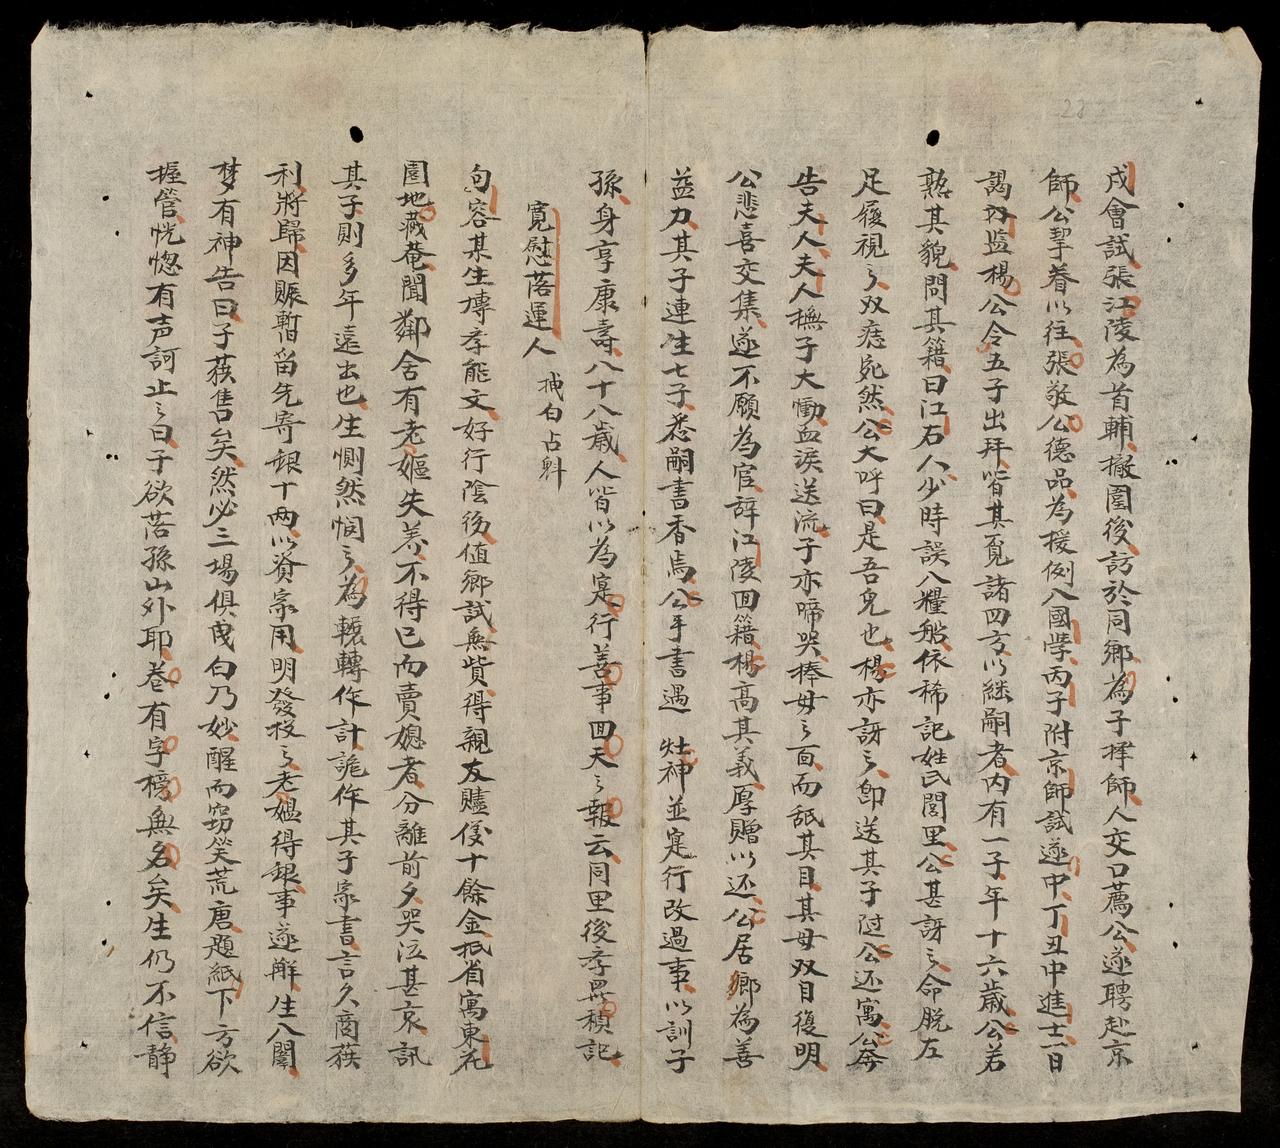 戌會試張江陵為首輔撤圍後訪於同鄉為子擇師人交口薦公遂聘赴京
師公挈眷以往張敬公德品為援例入國學丙子附京師試遂中丁丑中進士一日
謁内監楊公令五子出拜皆其覓諸四方以継嗣者内有一子年十六歲公若
熟其貌問其籍曰江右人少時誤入糧船依稀記姓氏閭里公甚訝之命脫左
足履視之双痣宛然公大呼曰是吾児也楊亦訝之即送其子过公还寓公奔
告夫人夫人撫子大慟血淚送流子亦啼哭捧母之面而舐其目其母双目復明
公悲喜交集遂不願為官辞江陵回籍楊高其義厚贈以还公居鄉為善
益力其子連生七子悉嗣書香焉公手書遇 灶神並寔行改過事以訓子
孫身享康壽八十八歲人皆以為寔行善事回天之報云同里後孝羅楨記
寬慰落運人 拽白占魁
句容某生博孝能文好行陰徳值鄉試無貲得親友贐仅十餘金抵省寓東花
園地藏菴聞鄰舍有老嫗失养不得已而賣媳者分離前夕哭泣甚哀訊
其子則多年遠出也生惻然悯之為輾轉作計詭作其子家書言久商獲
利將歸因賬暫畄先寄銀十両以資家用明發投之老媪得銀事遂解生入闈
梦有神告曰子獲售矣然必三場俱曳白乃妙醒而窃笑荒唐題紙下方欲
握管恍惚有声訶止之曰子欲落孫山外耶卷有字榜無名矣生仍不信静